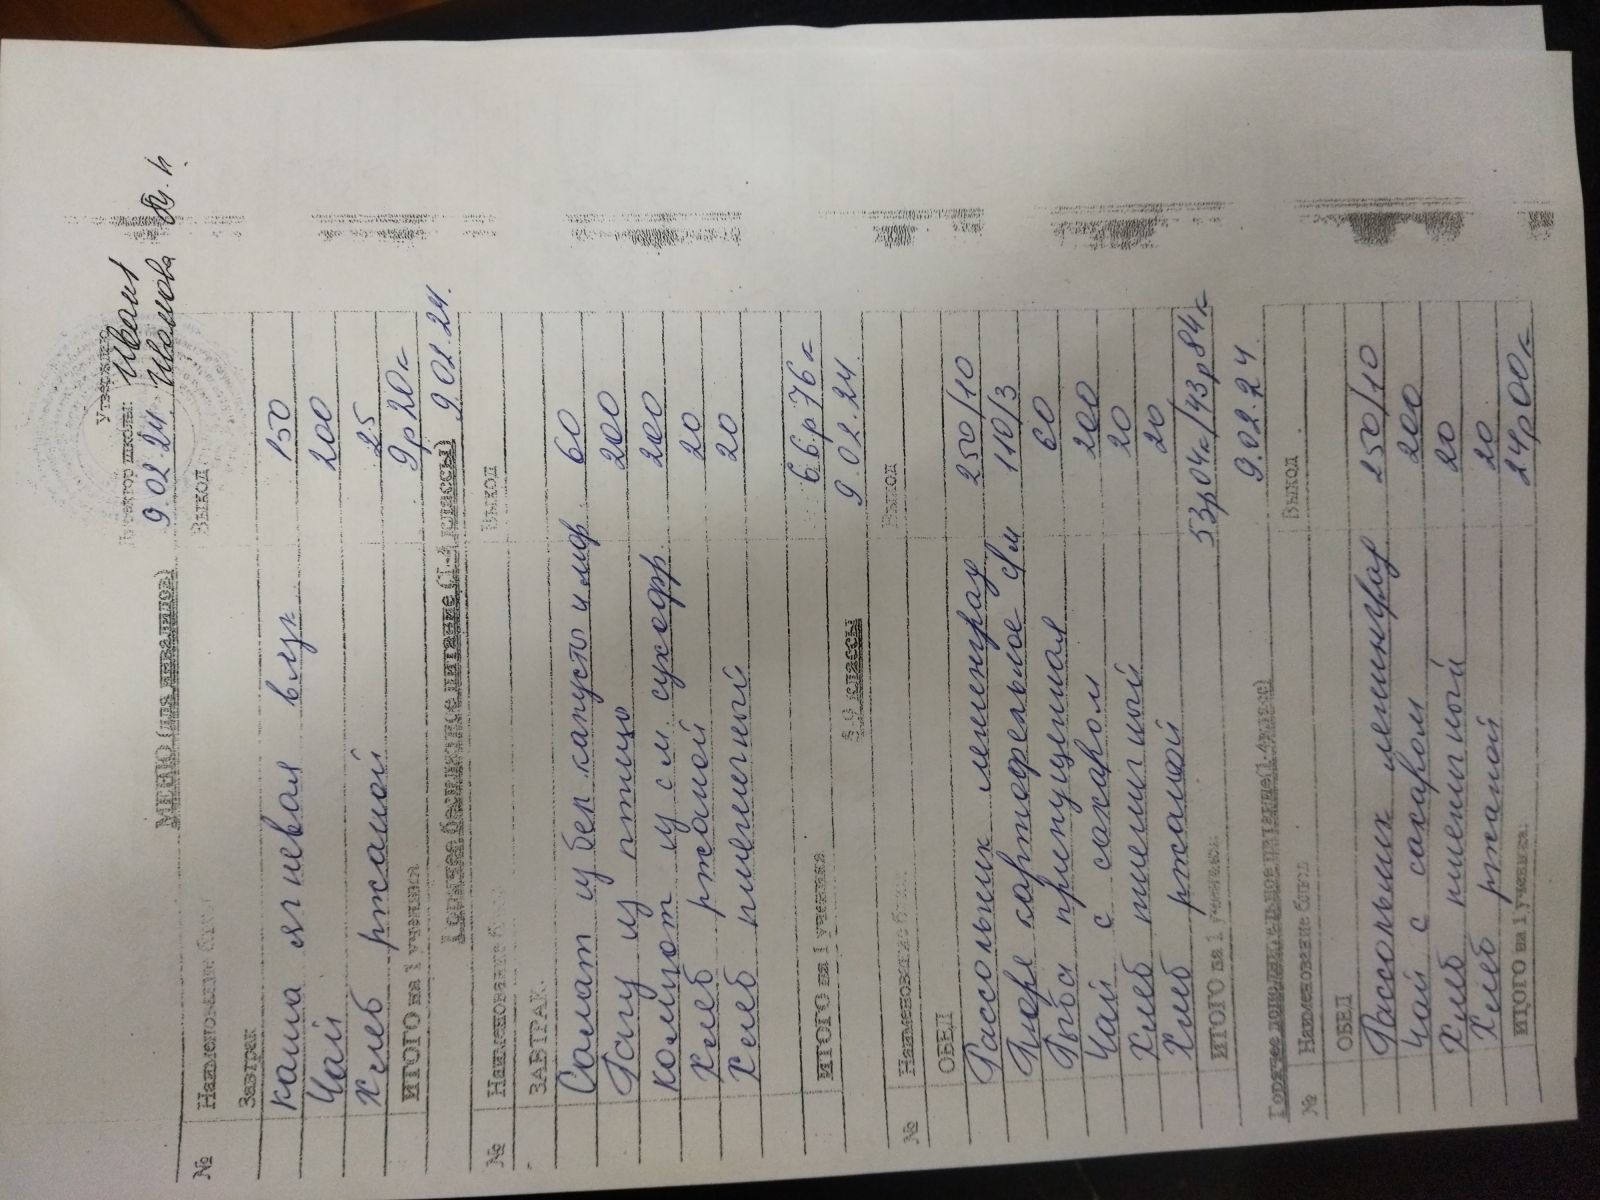 Утверждаю
Директор школы:
МЕНЮ (для инвалидов) 9.02.24. Иванова
№ Наименование блюд Выход
Завтрак
Каша ячневая вязк 150
Чай 200
Хлеб ржаной 25
ИТОГО на 1 ученика 9р20к
Горячее бесплатное питание (1-4 классы) 9.02.24.
№ Наименование блюд Выход
ЗАВТРАК.
Салат из бел капусты и мор 60
Рагу из птицы 200
Компот из см. сухофр. 200
Хлеб ржаной 20
Хлеб пшеничный 20
ИТОГО на 1 ученика 66р76к
5-9 классы 9.02.24
№ Наименование блюд Выход
ОБЕД
Рассольник ленинград 250/10
Пюре картофельное с/м 110/3
Рыба припущенная 60
Чай с сахаром 200
Хлеб пшеничный 20
Хлеб ржаной 20
ИТОГО на 1 ученика 53р04к/43р84к
9.02.24
Горячее дополнительное питание(1-4класс)
№ Наименование блюд Выход
ОБЕД
Рассольник ленинград 250/10
Чай с сахаром 200
Хлеб пшеничный 20
Хлеб ржаной 20
ИТОГО на 1 ученика. 24р00к